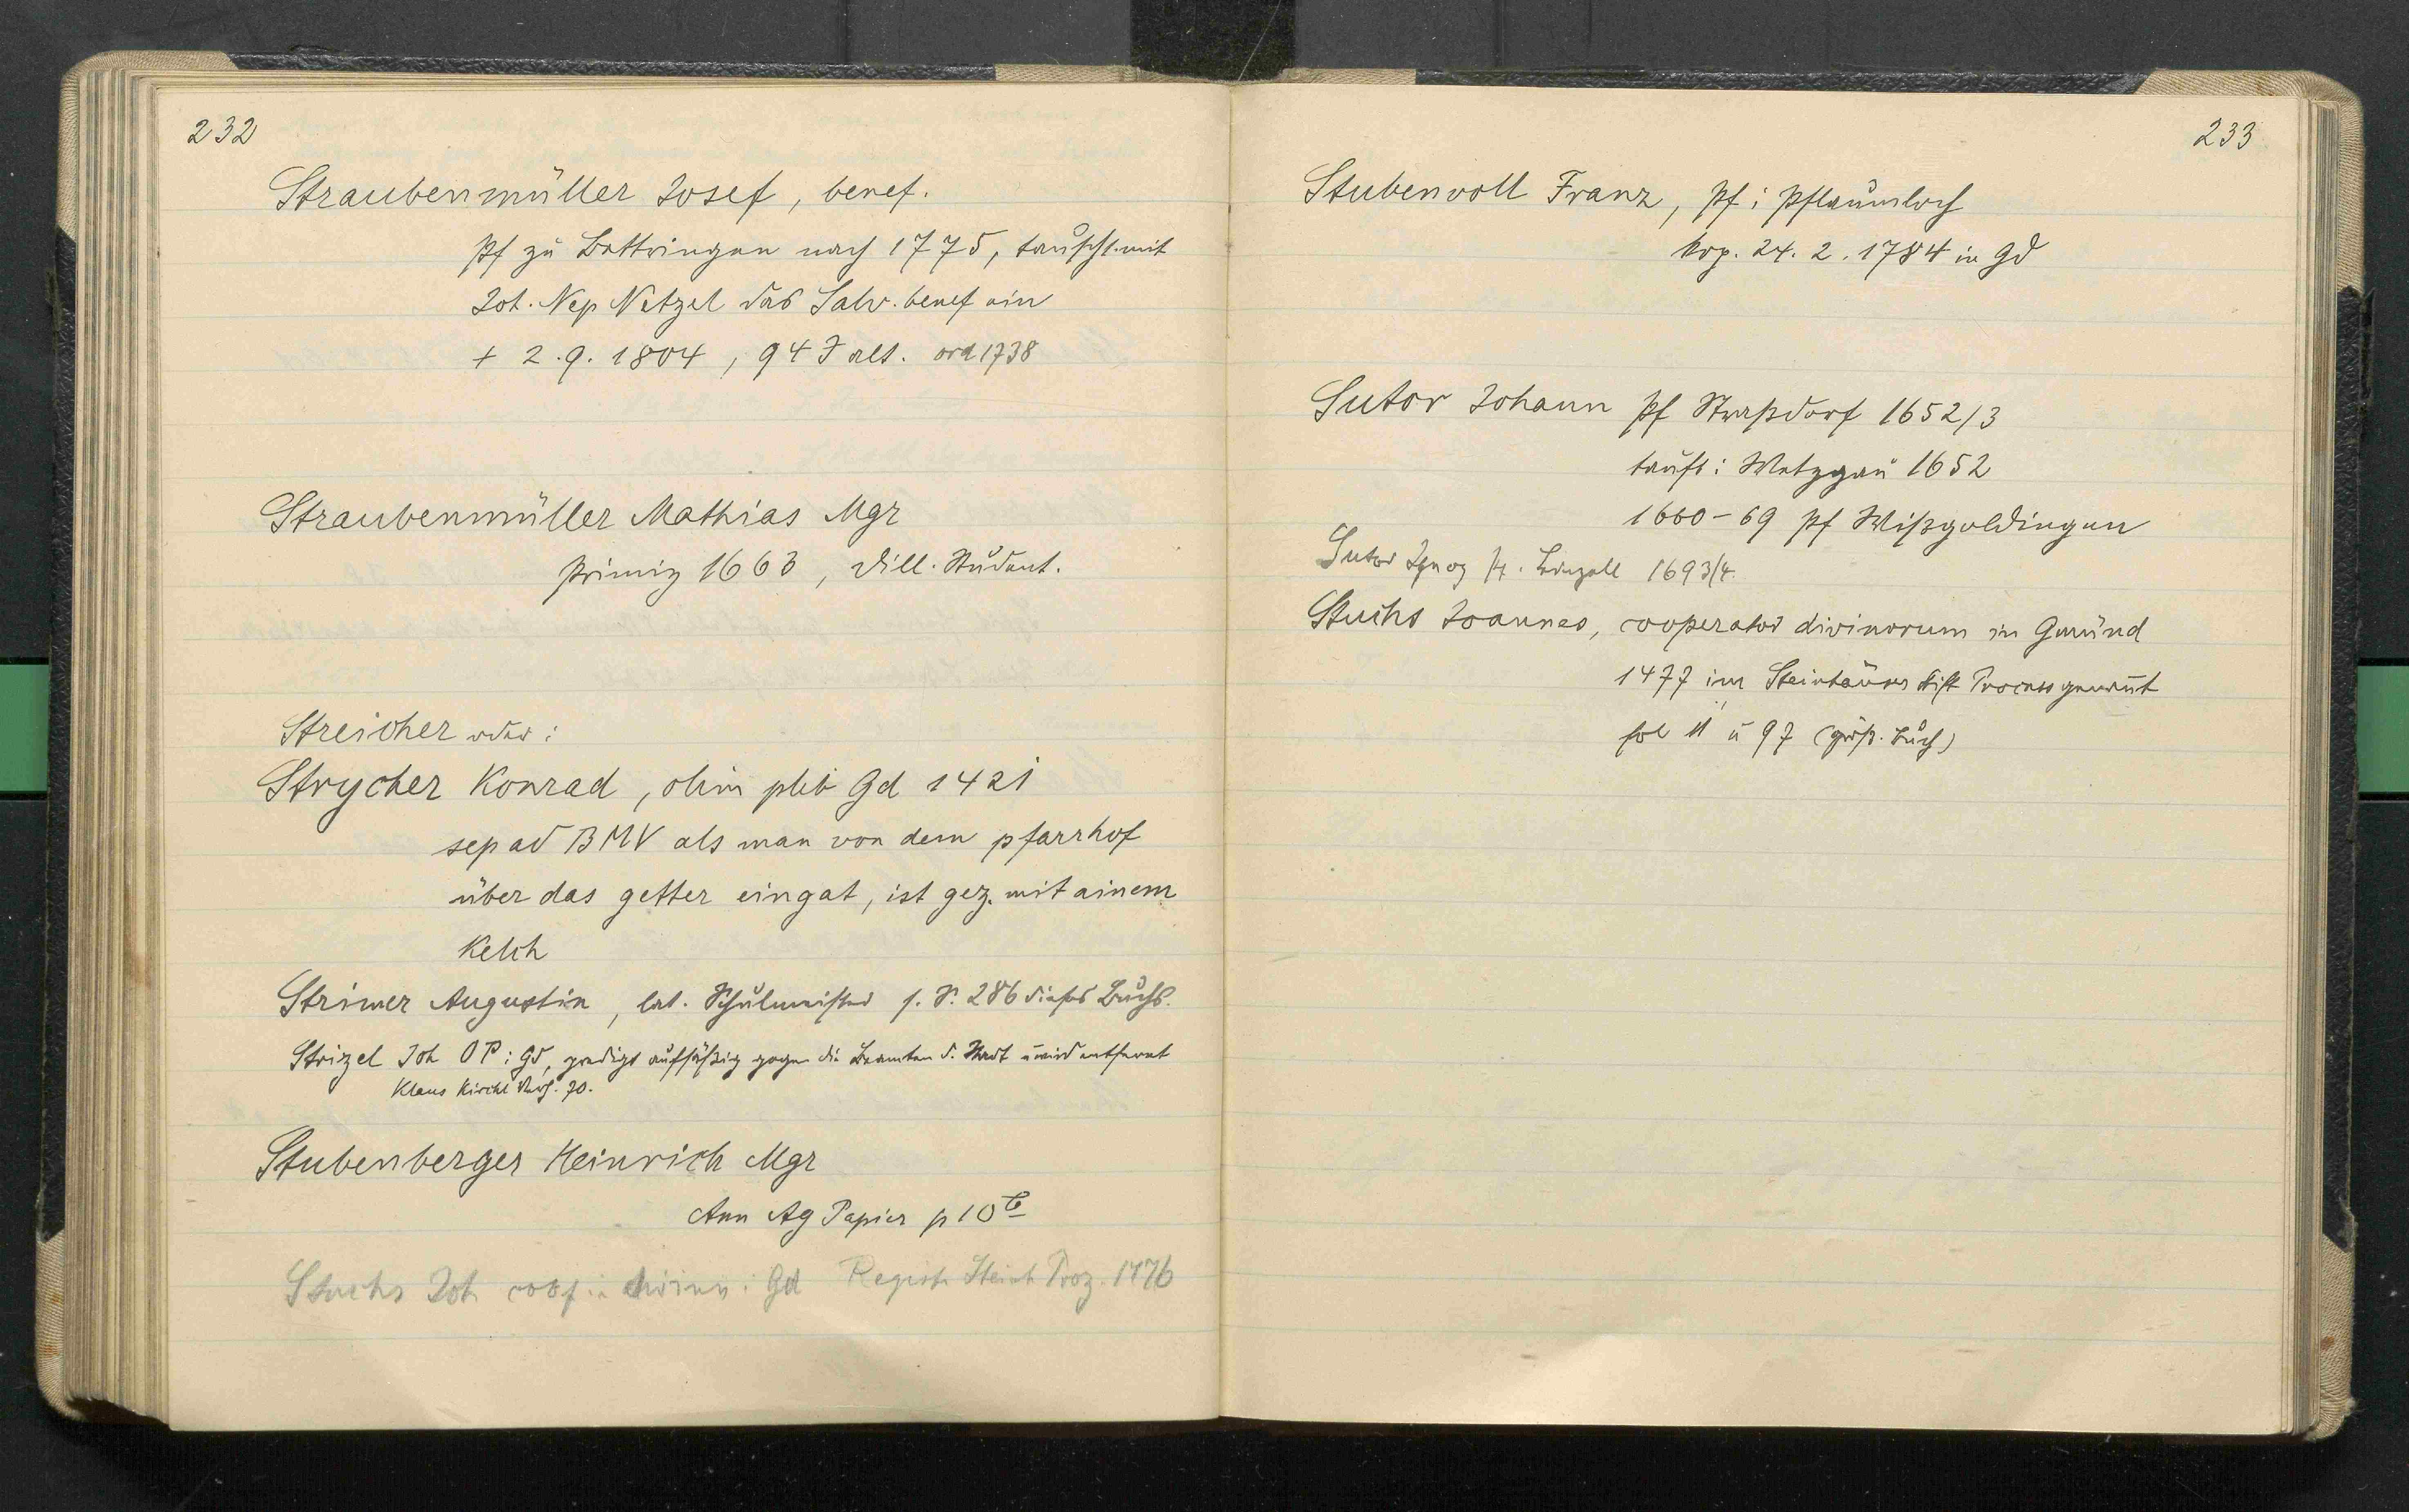 232
Straubenmüller Josef, benef.
Pf zu Bettringen nach 1775, tauscht mit
Joh. Nep Netzel das Salv. benef ein
+ 2.9. 1804, 94 J alt. ord 1738
Straubenmüller Mathias Mgr
Primiz 1663, Dill. Student.
Streicher oder:
Strycher Konrad, olim pleb Gd 1421
sep ad BMV als man von dem pfarrhof
über das getter eingat, ist gez. mit ainem
Kelch
Strimer Augustin, lat. Schulmeister s. S. 286 dieses Buchs.
Strizel Joh OP i Gd, predigt aufsässig gegen die Beamten d. Stadt u wird entfernt
Klaus Kirchl Verh. 70.
Stubenberger Heinrich Mgr
Ann Ag Papier p 10 b
Stuchs Joh coop divin i Gd Registr Steinh Proz. 1476
233
Stubenvoll Franz, Pf i Pflaumloch
kop. 24. 2. 1784 in Gd
Sutor Johann Pf Straßdorf 1652/3
tauft i Wetzgau 1652
1660-69 Pf Wißgoldingen
Sutor Ignaz Pf. 1693/4.
Stuchs Joannes, cooperator divinorum in Gmünd
1477 im Steinhäuser Stift Process genannt
fol 11 u 97 (größ. Buch)